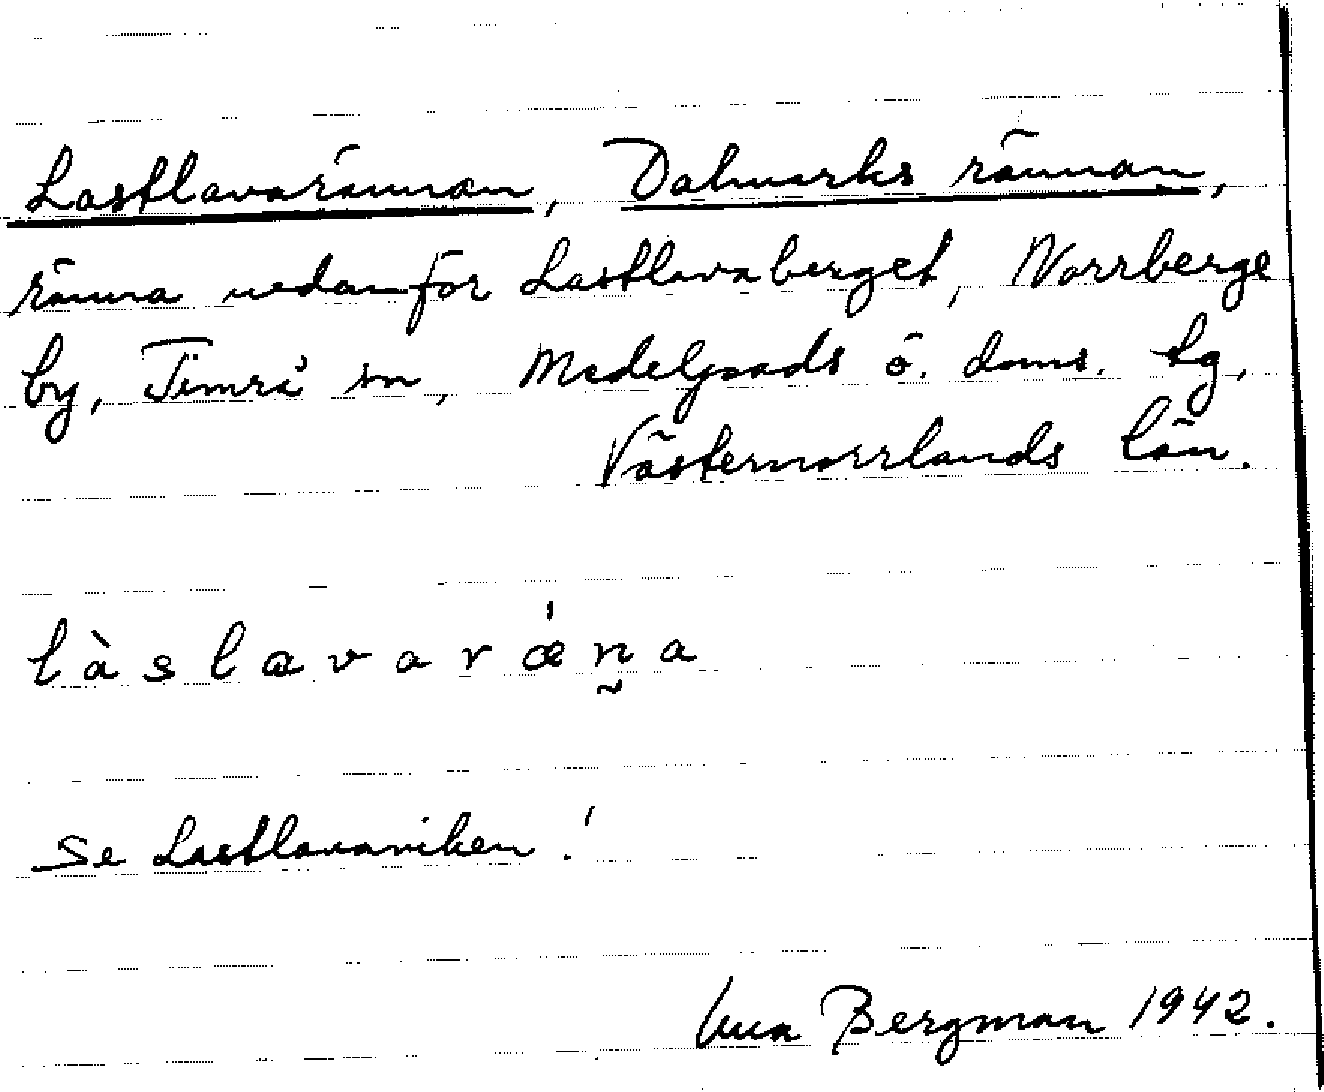 Lastlavarännan, Dalmarks rännan,
ränna nedanför Lastlavaberget, Norrberge
by, Timrå sn, Medelpads ö. doms. tg,
Västernorrlands län.
làslavarǽn̰a
se Lastlavaviken!
Bergman 1942.